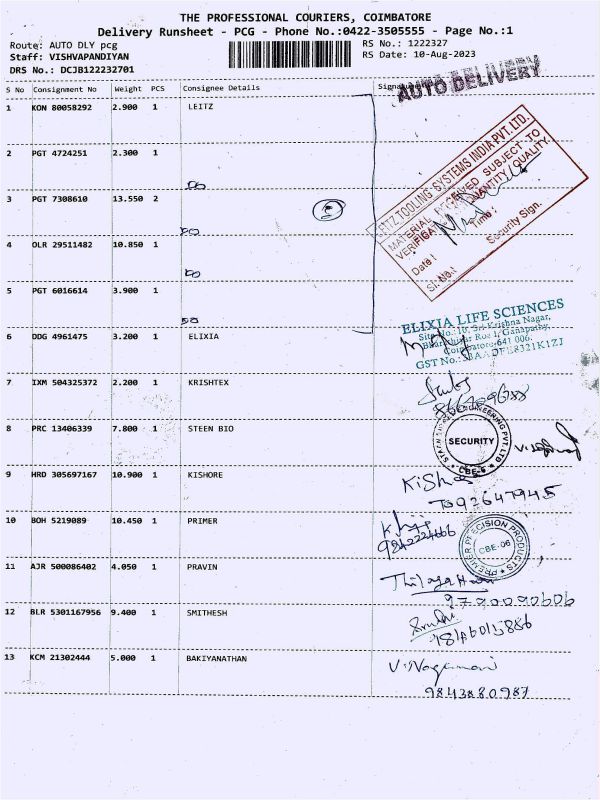 THE PROFESSIONAL COURIERS, COIMBATORE
Delivery Runsheet - PCG - Phone No.:0422-3505555 - Page No.:1
Route: AUTO DLY pcg
Staff: VISHVAPANDIYAN
DRS No.: DCJB122232701
RS No.: 1222327
RS Date: 10-Aug-2023
AUTO DELIVERY
S No Consignment No Weight PCS Consignee Details Signature
1 KON 80058292 2.900 1 LEITZ
2 PGT 4724251 2.300 1
3 PGT 7308610 13.550 2
4 OLR 29511482 10.850 1
5 PGT 6016614 3.900 1
LEITZ TOOLING SYSTEMS INDIA PVT. LTD.
MATERIAL RECEIVED SUBJECT TO
VERIFICATION QUANTITY / QUALITY
Date : Time :
Sl. No. : Security Sign.
6 DDG 4961475 3.200 1 ELIXIA
ELIXIA LIFE SCIENCES
Site No.: 10, Sri Krishna Nagar,
Bharathiyar Road 1, Ganapathy,
Coimbatore-641 006.
7 IXM 504325372 2.200 1 KRISHTEX
8 PRC 13406339 7.800 1 STEEN BIO
SECURITY
CBE-6
9 HRD 305697167 10.900 1 KISHORE
Kisho
7092647945
10 BOH 5219089 10.450 1 PRIMER
9842224666
PREMIER PRECISION PRODUCTS
CBE-06
11 AJR 500086402 4.050 1 PRAVIN
9790090606
12 BLR 5301167956 9.400 1 SMITHESH
13 KCM 21302444 5.000 1 BAKIYANATHAN
9843880987